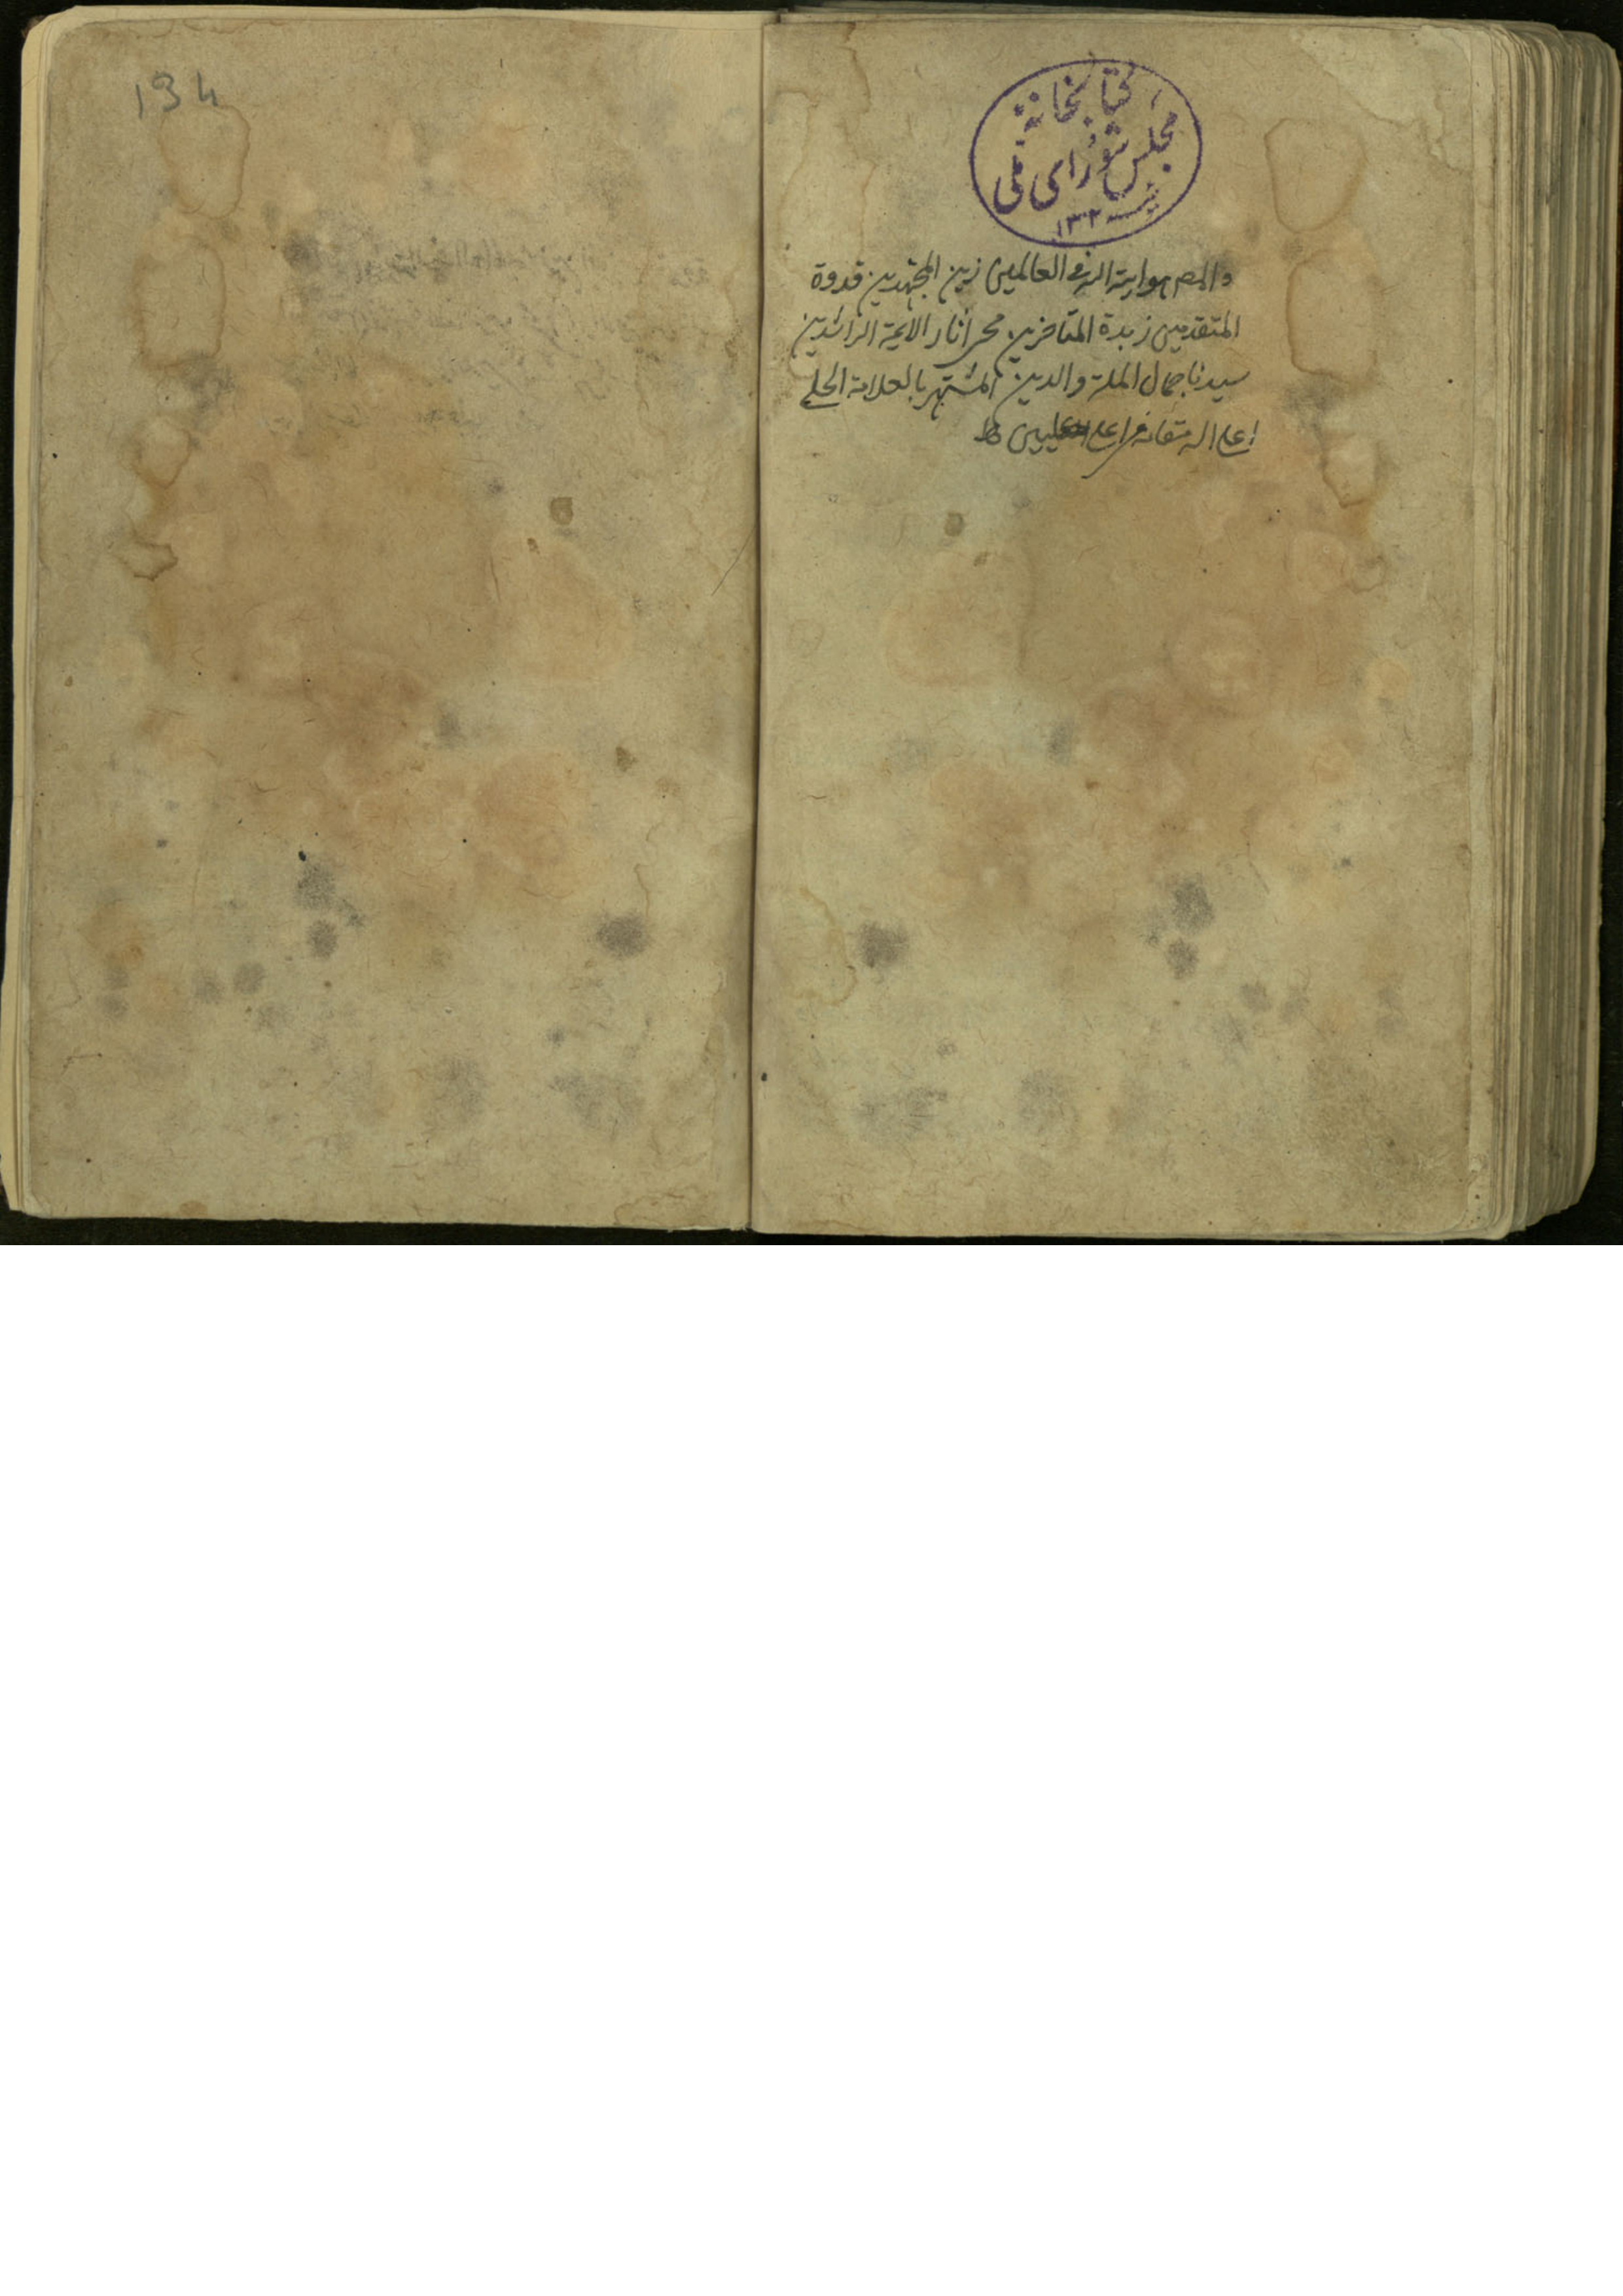 كتابخانهٔ
مجلس شورای ملی
سنه ۱۳۲
والمص هو اية الله في العالمين زين المجتهدين قدوة
المتقدمين زبدة المتاخرين محى اثار الايمة الراشدين
سيدنا جمال الملة والدين المشتهر بالعلامة الحلى
اعلى الله مقامه فى اعلى عليين